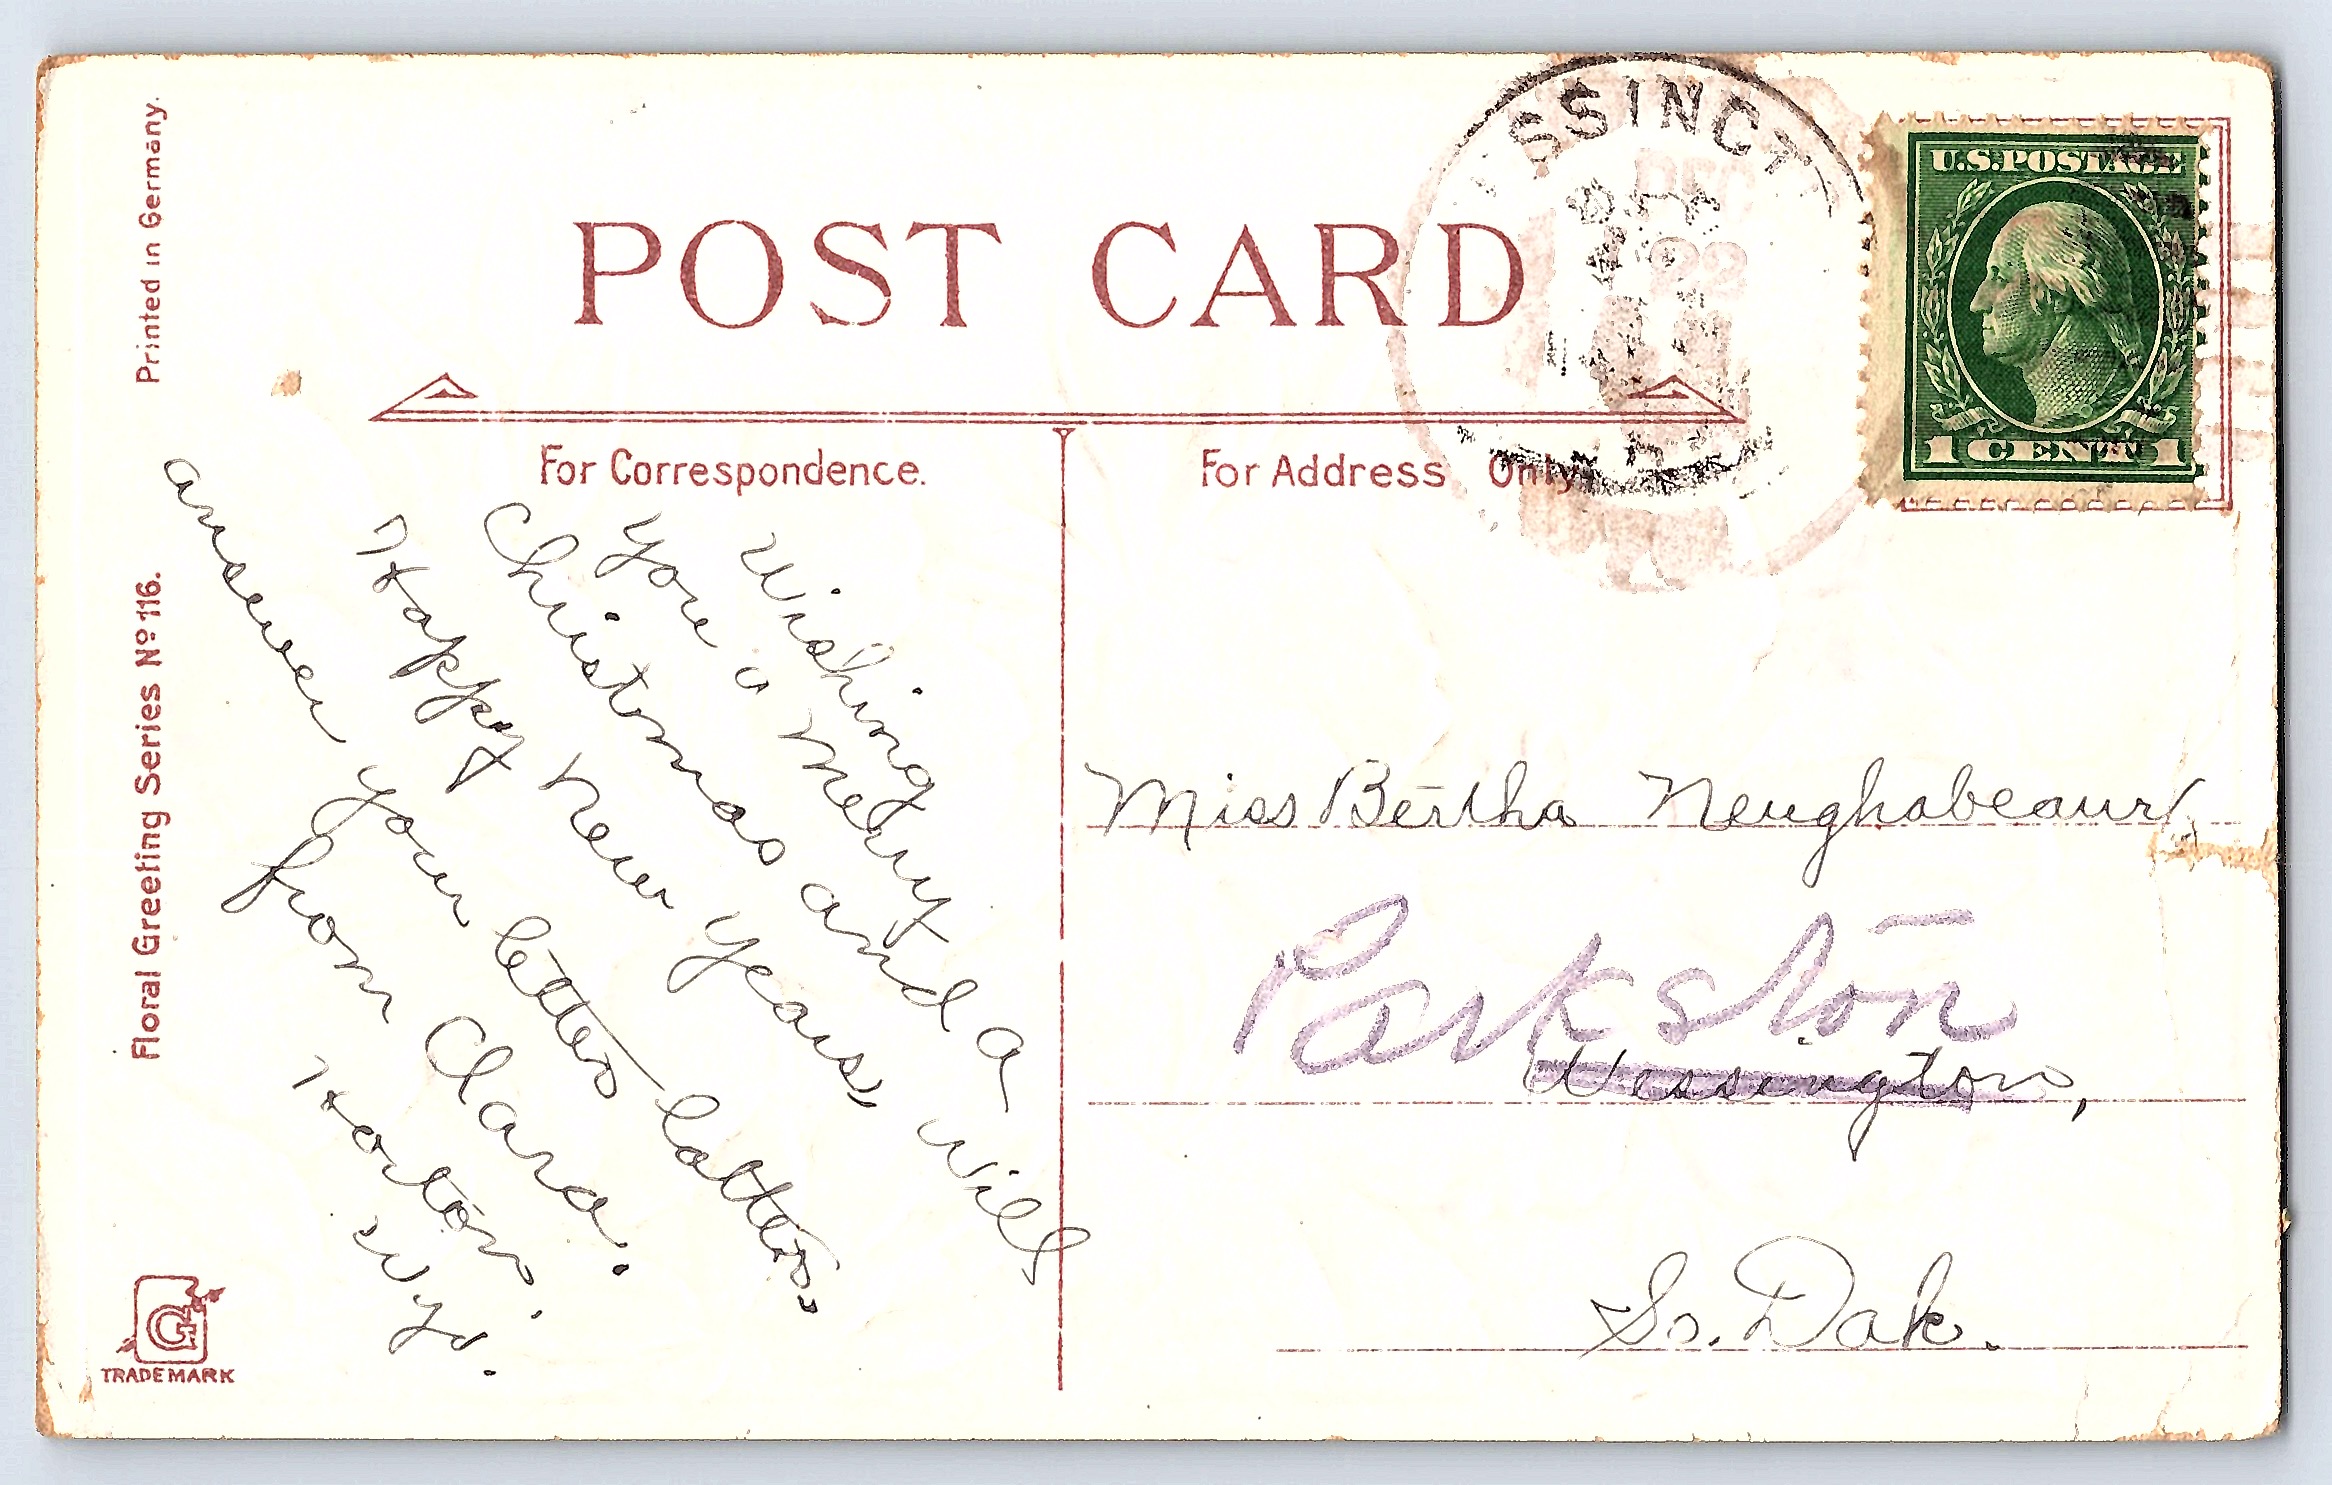 Printed in Germany.
Floral Greeting Series Nº 116.
TRADEMARK
POST CARD
For Correspondence.
For Address Only.
U.S.POSTAGE
1 CENT 1
SSINGT
DEC
22
Wishing
you a Merry
Christmas and a
Happy New Years, will
answer your letter latter,
from Clara.
Horton.
Wyo.
Miss Bertha Neughabeaur
Parkston
Wessington,
So. Dak.